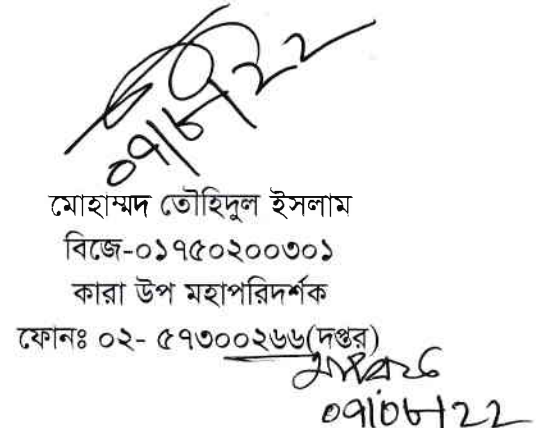 ০৭/৮/২২
মোহাম্মদ তৌহিদুল ইসলাম
বিজে-০১৭৫০২০০৩০১
কারা উপ মহাপরিদর্শক
ফোনঃ ০২- ৫৭৩০০২৬৬(দপ্তর)
০৭/০৮/২২